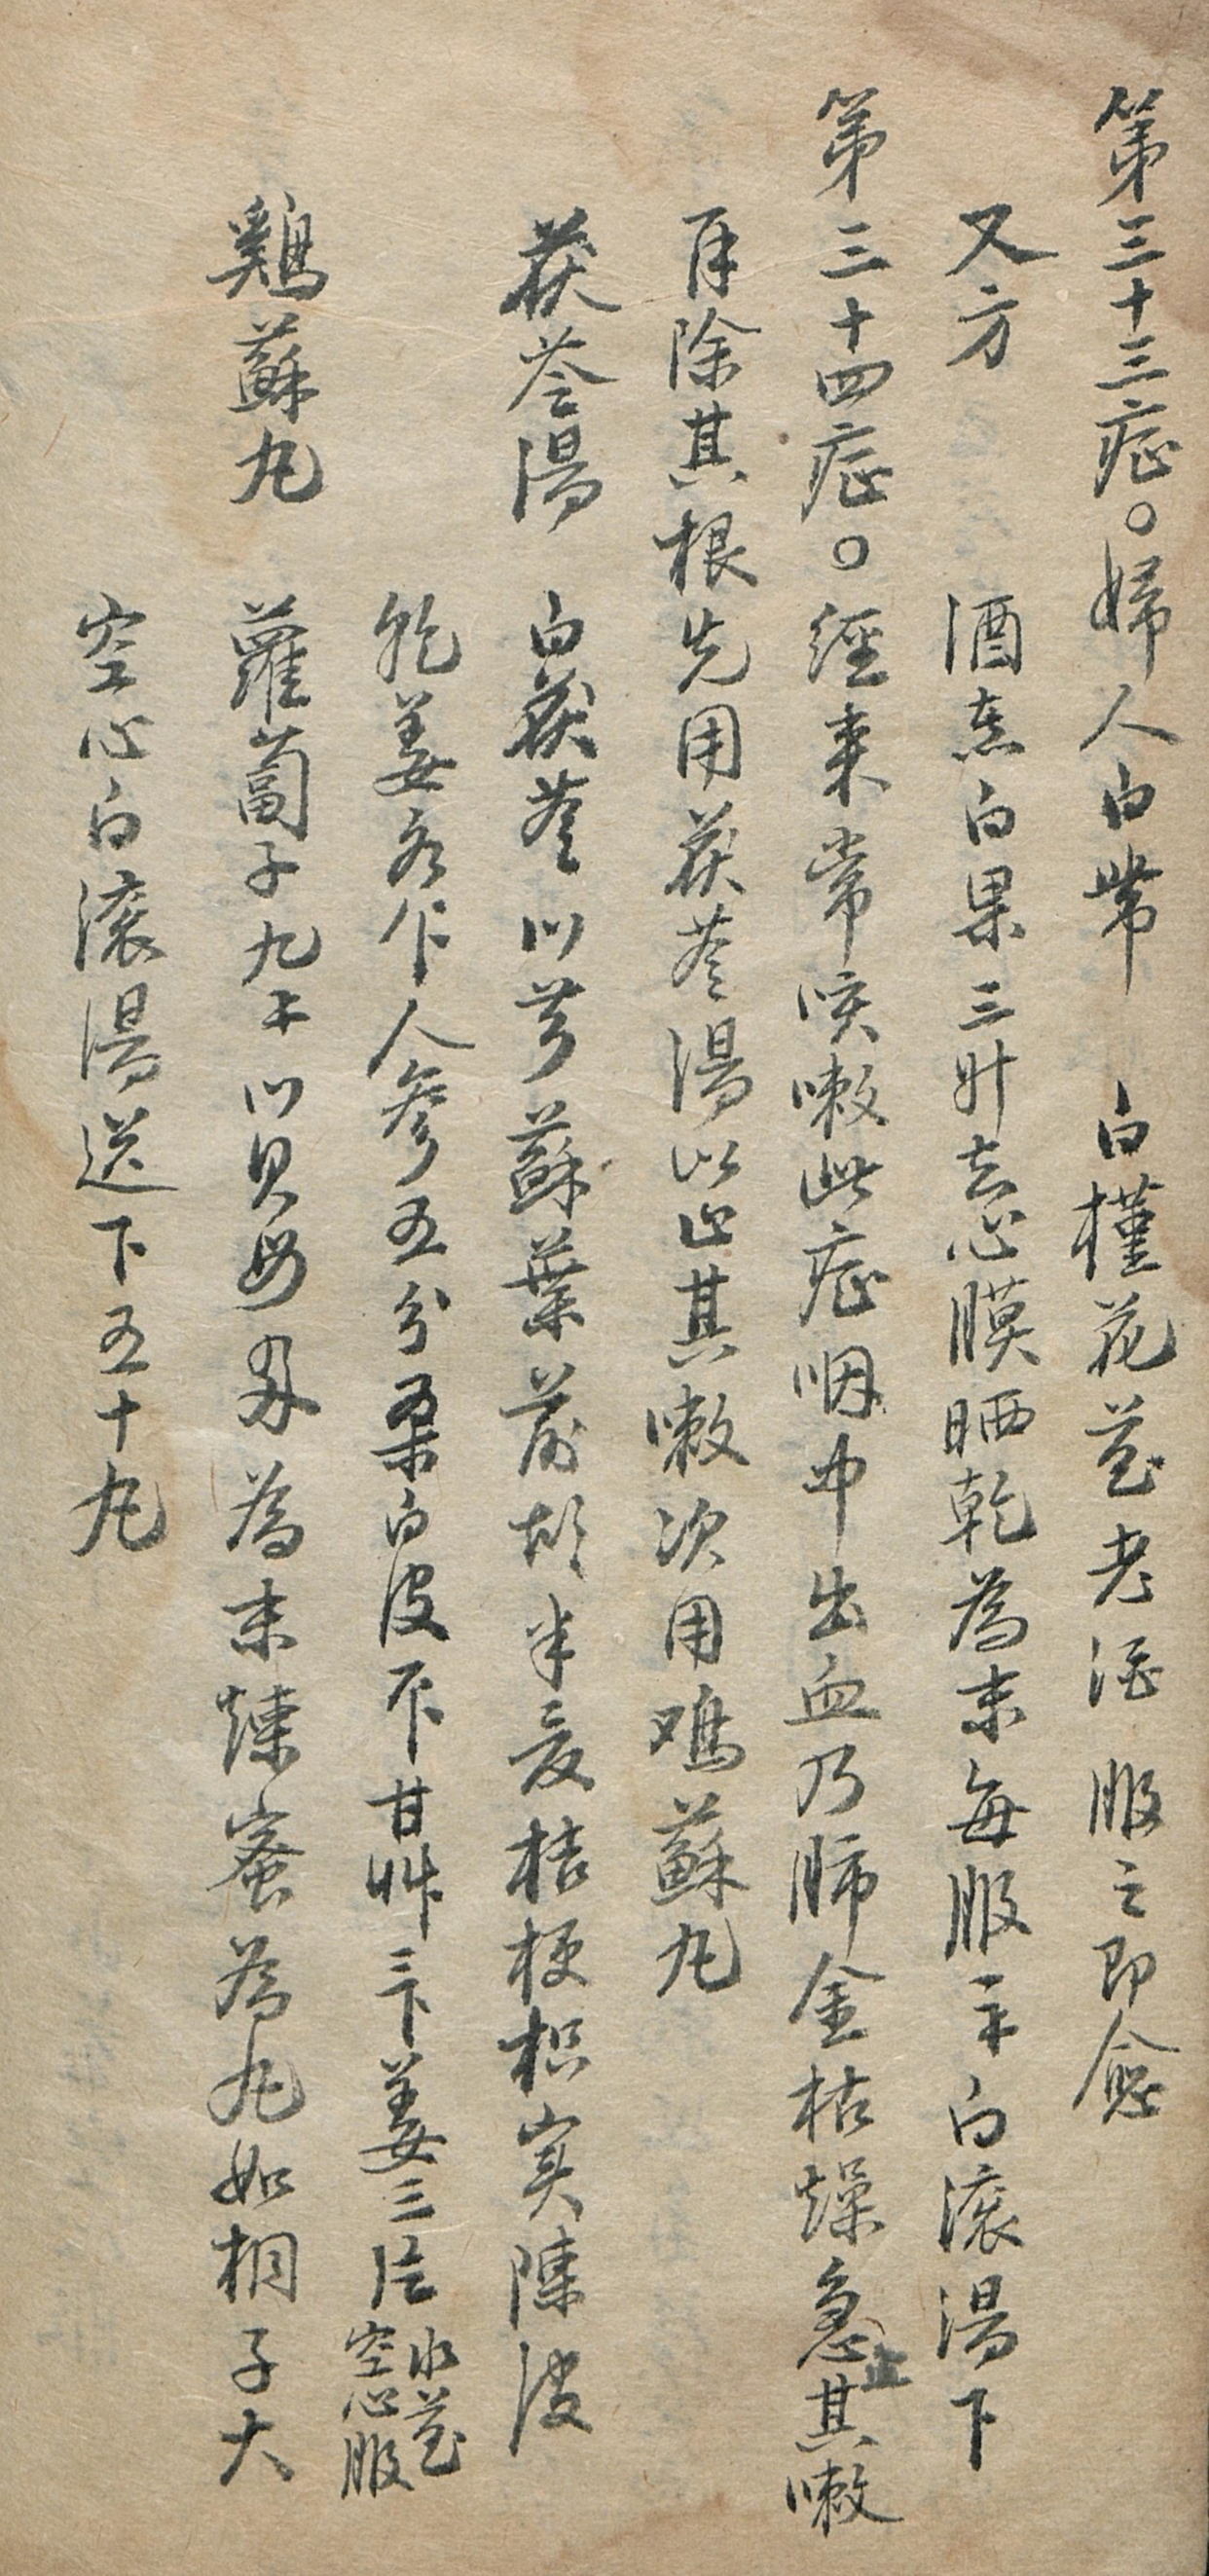 第三十三症○婦人白帶 白槿花煮老酒服之即愈
又方 酒煮白果三廾去心膜晒乾為末每服三白滾湯下
第三十四症○經来常咳嗽此症咽中出血乃肺金枯燥急止其嗽
再除其根先用茯苓湯以止其嗽次用鳮蘇丸
茯苓湯 白茯苓川芎蘇葉前胡半夏桔梗枳实陳皮
乾姜各 人參五分桑白皮 甘艸 姜三片水煮空心服
鷄蘇丸 蘿蔔子九 川貝母 為末煉蜜為丸如桐子大
空心白滾湯送下五十丸